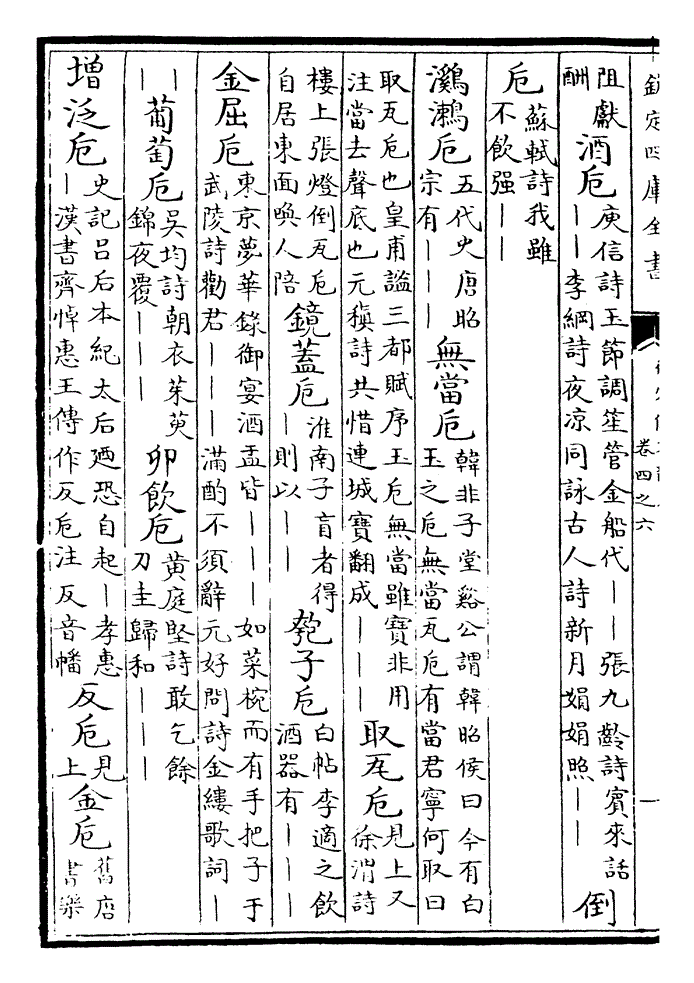 欽定四庫全書 卷四之六
阻獻酬 酒巵 庾信詩玉節調笙管金船代——張九齡詩賓來話——李綱詩夜凉同詠古人詩新月娟娟照—— 倒
巵 蘇軾詩我雖不飲强——
鸂鷘巵 五代史唐昭宗有——— 無當巵 韓非子堂谿公謂韓昭侯曰今有白玉之巵無當瓦巵有當君寧何取曰
取瓦巵也皇甫謐三都賦序玉巵無當雖寶非用注當去聲底也元稹詩共惜連城寶翻成——— 取瓦巵 見上又徐渭詩
樓上張燈倒瓦巵自居東面喚人陪 鏡蓋巵 淮南子盲者得—則以—— 匏子巵 白帖李適之飲酒器有———
金屈巵 東京夢華錄御宴酒盃皆———如菜椀而有手把子于武陵詩勸君———滿酌不須辭元好問詩金縷歌詞—
—— 葡萄巵 吳均詩朝衣茱萸錦夜覆——— 卯飲巵 黃庭堅詩敢乞餘刀圭歸和———
增泛巵 史記呂后本紀太后廼恐自起—孝惠—漢書齊悼惠王傳作反巵注反音幡 反巵 見上 金巵 舊唐書樂